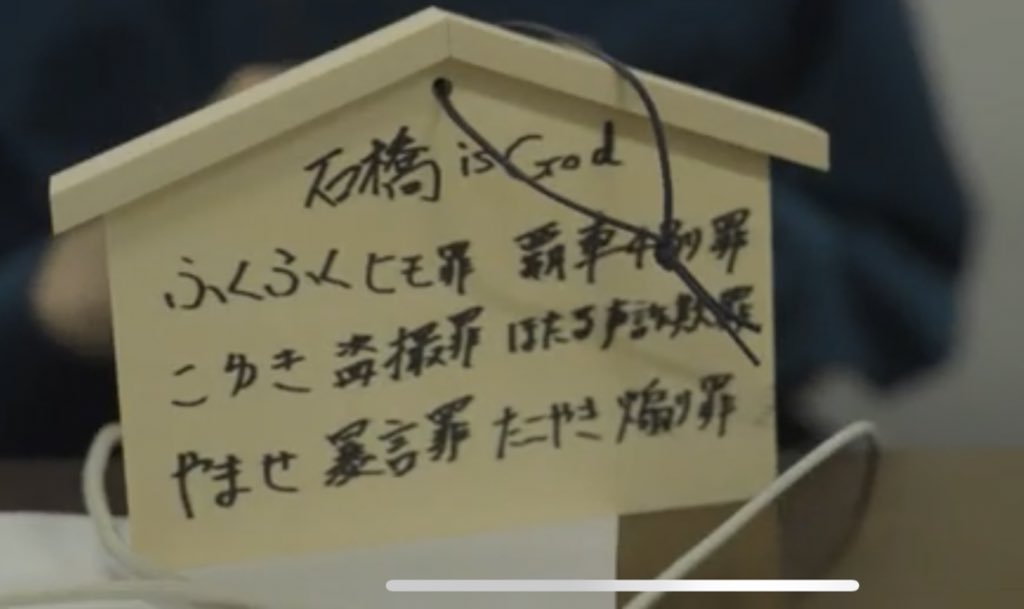 石橋 is God
ふくふくヒモ罪 覇車 罪
こゆき 盗撮罪 ほたる声詐欺罪
やませ 暴言罪 たこやき 煽り罪